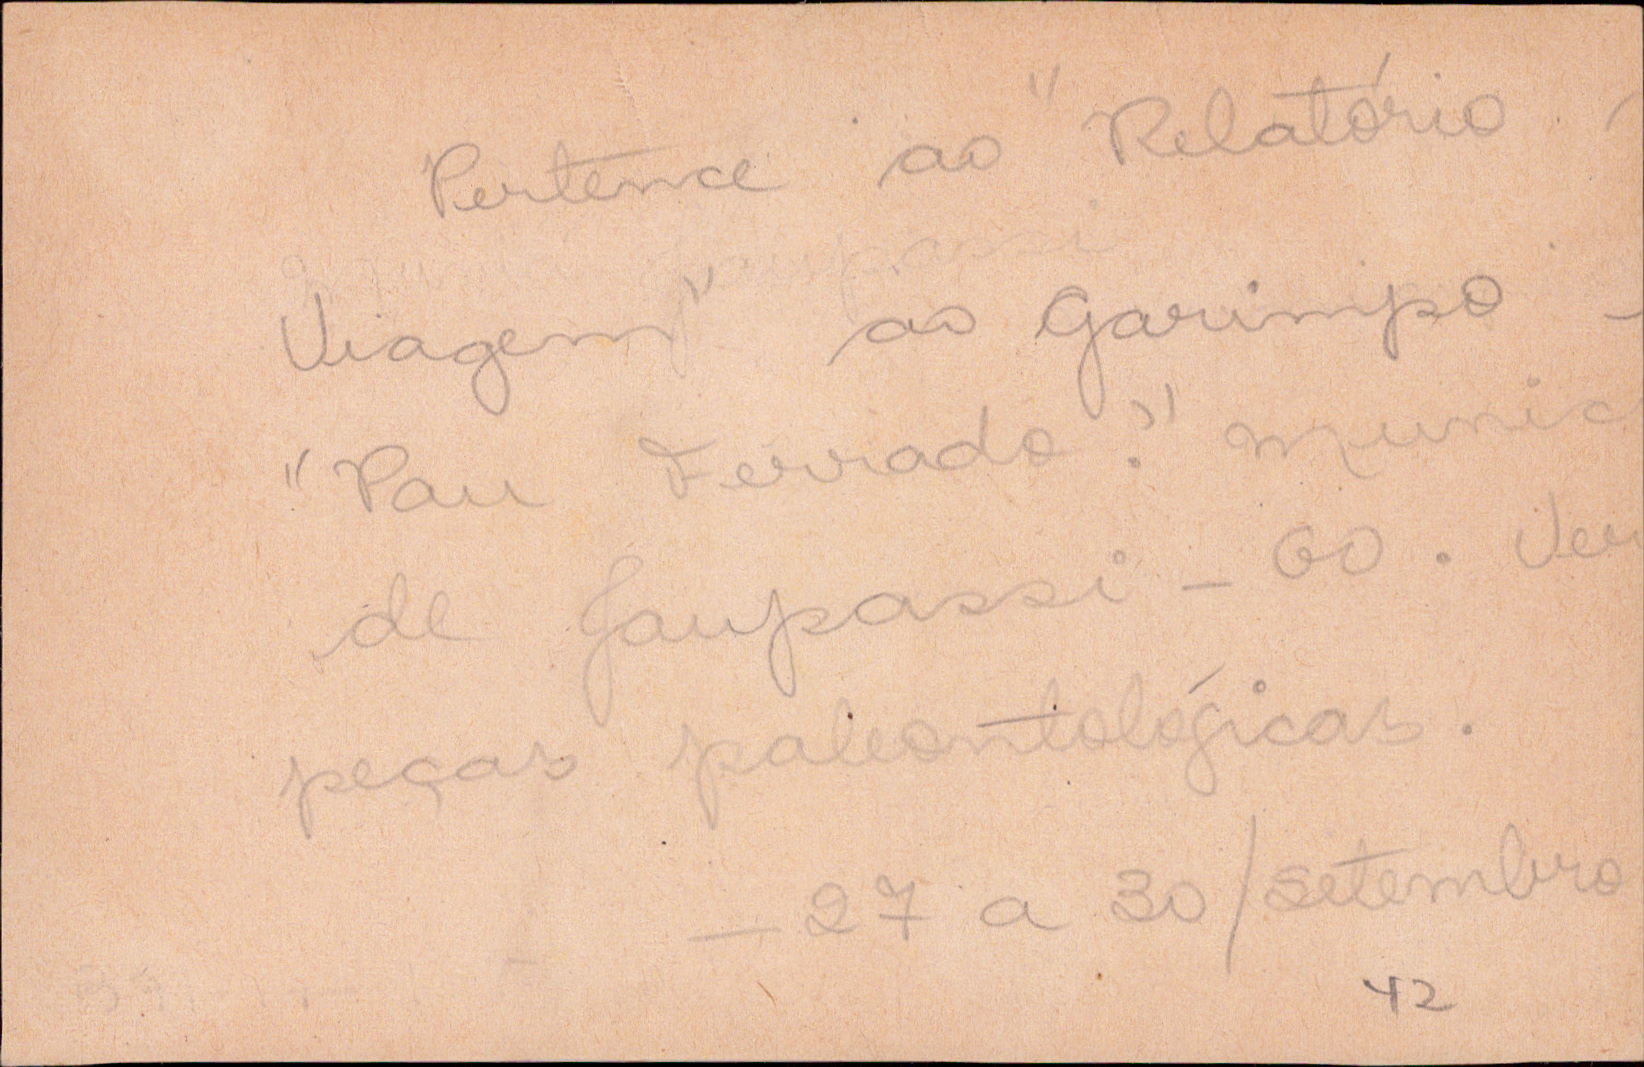 Pertence ao "Relatório
Viagem" ao Garimpo
"Pau Ferrado". Munic
de Jaupassi - GO. Ver
peças paleontológicas.
- 27 a 30/setembro
42